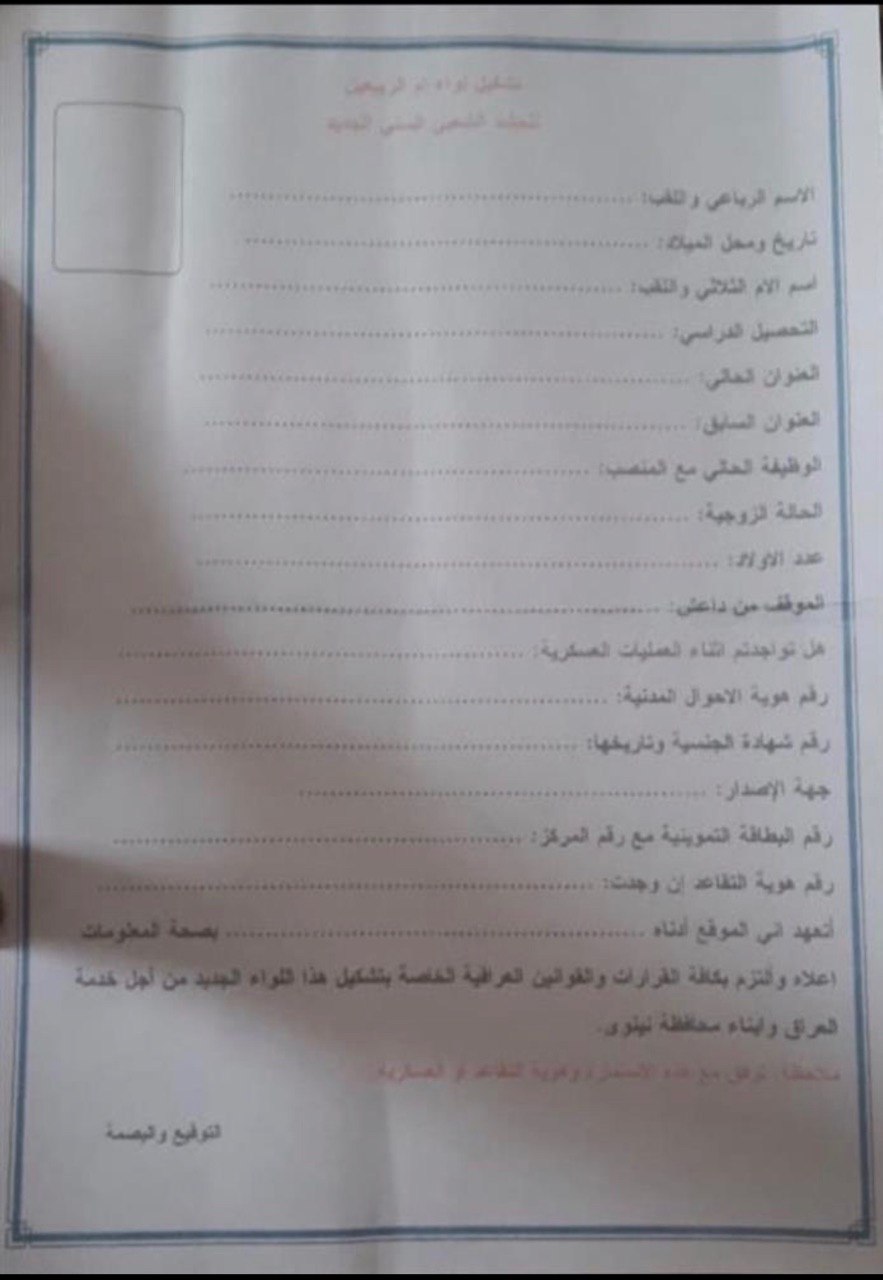 تشكيل لواء ام الربيعين
للحشد الشعبي السني الجديد
الاسم الرباعي واللقب: ................................................
تاريخ ومحل الميلاد: ................................................
اسم الام الثلاثي واللقب: ................................................
التحصيل الدراسي: ................................................
العنوان الحالي: ................................................
العنوان السابق: ................................................
الوظيفة الحالي مع المنصب: ................................................
الحالة الزوجية: ................................................
عدد الاولاد: ................................................
الموقف من داعش: ................................................
هل تواجدتم اثناء العمليات العسكرية: ................................................
رقم هوية الاحوال المدنية: ................................................
رقم شهادة الجنسية وتاريخها: ................................................
جهة الإصدار: ................................................
رقم البطاقة التموينية مع رقم المركز: ................................................
رقم هوية التقاعد إن وجدت: ................................................
أتعهد اني الموقع أدناه ................................................ بصحة المعلومات
اعلاه وألتزم بكافة القرارات والقوانين العراقية الخاصة بتشكيل هذا اللواء الجديد من أجل خدمة
العراق وابناء محافظة نينوى.
ملاحظة: ترفق مع هذه الاستمارة وهوية التقاعد او العسكرية
التوقيع والبصمة